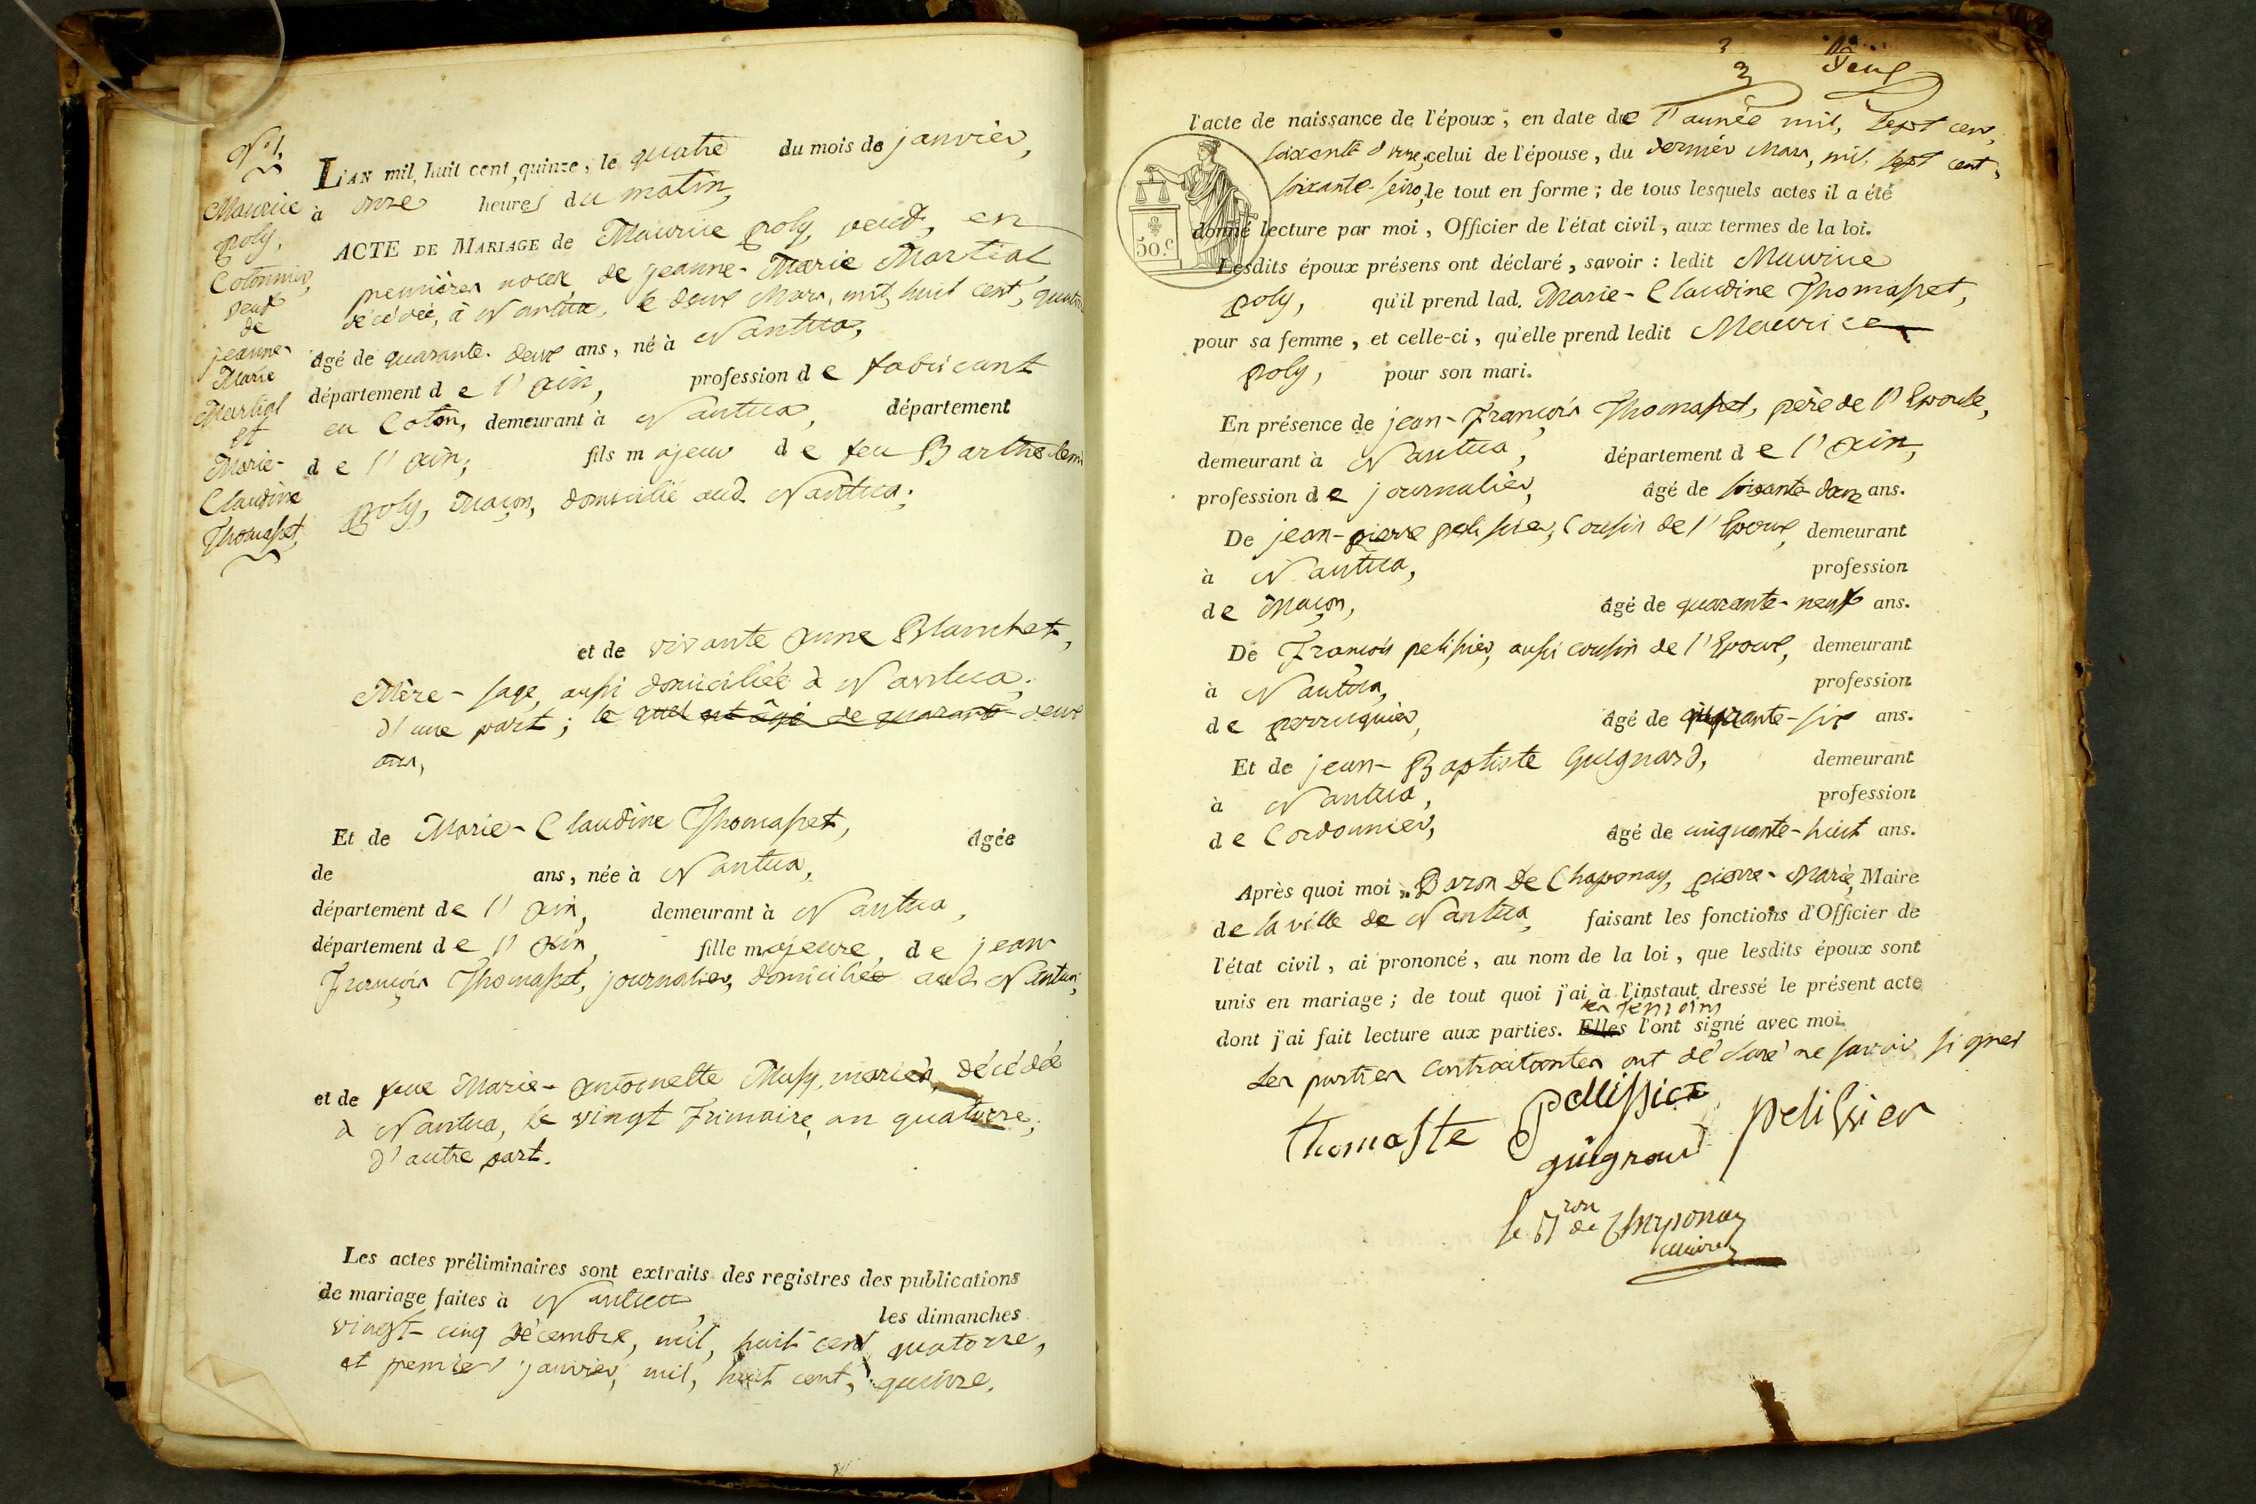 N.º 1.
Maurice
poly,
Cotonnier,
veuf
de
jeanne-
Marie
Martial
et
Marie-
Claudine
Thomasset,
L'AN mil huit cent quinze, le quatre du mois de janvier,
à onze heures du matin,
ACTE DE MARIAGE de Maurice poly, veuf, en
premières noces, de jeanne-Marie Martial
décédée, à Nantua, le deux Mars, mil huit cent, quatorze
âgé de quarante-deux ans, né à Nantua,
département de l'ain, profession de fabricant
en Coton, demeurant à Nantua, département
de l'ain, fils majeur de feu Barthelemi
poly, Maçon, domicilié aud. Nantua;
et de vivante anne Blanchet,
Mère-sage, aussi domiciliée à Nantua,
d'une part; le quel est âgé de quarante deux
ans,
Et de Marie-Claudine Thomasset, âgée
de ans, née à Nantua,
département de l'ain, demeurant à Nantua,
département de l'ain, fille majeure, de jean
François Thomasset, journalier, domiciliée aud. Nantua;
et de feue Marie-antoinette Musy, mariés, décédée
à Nantua, le vingt frimaire, an quatorze,
d'autre part.
Les actes préliminaires sont extraits des registres des publications
de mariage faites à Nantua, les dimanches
vingt-cinq décembre, mil, huit cent quatorze,
et premier janvier, mil, huit cent, quinze.
3 deux
l'acte de naissance de l'époux, en date de l'année mil, sept cent,
soixante onze, celui de l'épouse, du dernier Mars, mil, sept cent,
soixante-seize, le tout en forme; de tous lesquels actes il a été
donné lecture par moi, Officier de l'état civil, aux termes de la loi.
50.c
Lesdits époux présens ont déclaré, savoir : ledit Maurice
poly, qu'il prend lad. Marie-Claudine Thomasset,
pour sa femme, et celle-ci, qu'elle prend ledit Maurice
poly, pour son mari.
En présence de jean-François Thomasset, père de l'Epouse,
demeurant à Nantua, département de l'ain,
profession de journalier, âgé de soixante-douze ans.
De jean-pierre pelissier, Cousin de l'Epoux, demeurant
à Nantua, profession
de Maçon, âgé de quarante-neuf ans.
De François pelissier, aussi cousin de l'Epoux, demeurant
à Nantua, profession
de perruquier, âgé de quarante-six ans.
Et de jean-Baptiste Guignard, demeurant
à Nantua, profession
de Cordonnier, âgé de cinquante-huit ans.
Après quoi moi, Baron de Chaponay, pierre-Marie, Maire
de la ville de Nantua, faisant les fonctions d'Officier de
l'état civil, ai prononcé, au nom de la loi, que lesdits époux sont
unis en mariage; de tout quoi j'ai à l'instant dressé le présent acte
les témoins
dont j'ai fait lecture aux parties. Elles l'ont signé avec moi.
Les parties contractantes ont déclaré ne savoir signer
Thomaste Pellissier pelissier
guignard
le Bron de Chaponay
maire